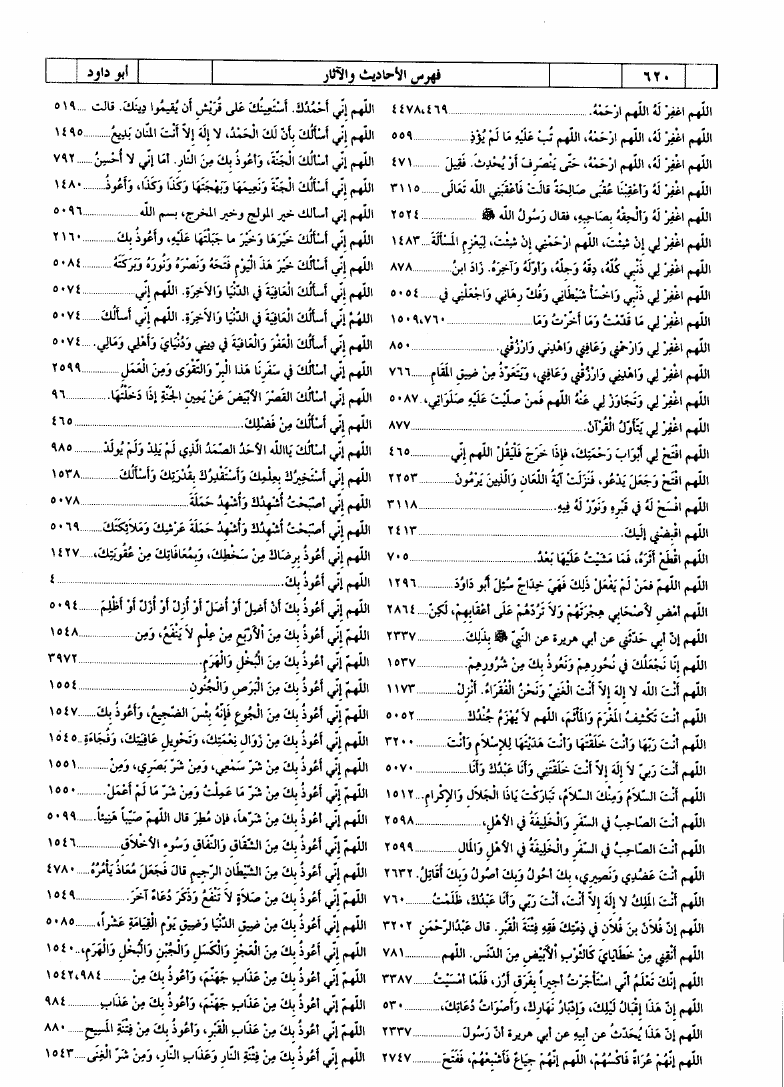 ٦٢٠ فهرس الأحاديث والآثار أبو داود
اللّهم اغْفِرْ لَهُ اللّهم ارْحَمْهُ. ٤٤٧٨،٤٦٩
اللّهم اغْفِرْ لَهُ، اللّهم ارْحَمْهُ، اللّهم تُبْ عَلَيْهِ مَا لَمْ يُؤْذِ ٥٥٩
اللّهم اغْفِرْ لَهُ، اللّهم ارْحَمْهُ، حَتَّى يَنْصَرِفَ أَوْ يُحْدِثَ. فَقِيلَ ٤٧١
اللّهم اغْفِرْ لَهُ وَأَعْقِبْنَا عُقْبَى صَالِحَةً قالَتْ فَأَعْقَبَنِي الله تَعَالَى ٣١١٥
اللّهم اغْفِرْ لَهُ وَأَلْحِقْهُ بِصَاحِبِهِ، فقال رَسُولُ الله ﷺ ٢٥٢٤
اللّهم اغْفِرْ لِي إنْ شِئْتَ، اللّهم ارْحَمْنِي إنْ شِئْتَ، لِيَعْزِمِ المَسْأَلَةَ ١٤٨٣
اللّهم اغْفِرْ لِي ذَنْبِي كُلَّهُ، دِقَّهُ وَجِلَّهُ، وَأَوَّلَهُ وَآخِرَهُ. زَادَ ابنُ ٨٧٨
اللّهم اغْفِرْ لِي ذَنْبِي وَاخْسَأْ شَيْطَانِي وَفُكَّ رِهَانِي وَاجْعَلْنِي في ٥٠٥٤
اللّهم اغْفِرْ لِي مَا قَدَّمْتُ وَمَا أَخَّرْتُ وَمَا ١٥٠٩،٧٦٠
اللّهم اغْفِرْ لِي وَارْحَمْنِي وَعَافِنِي وَاهْدِنِي وَارْزُقْنِي. ٨٥٠
اللّهم اغْفِرْ لِي وَاهْدِنِي وَارْزُقْنِي وَعَافِنِي، وَيَتَعَوَّذُ مِنْ ضِيقِ المَقَامِ ٧٦٦
اللّهم اغْفِرْ لِي وَتَجَاوَزْ لِي عَنْهُ اللّهم فَمنْ صَلَّيْتَ عَلَيْهِ صَلَوَاتِي، ٥٠٨٧
اللّهم اغْفِرْ لِي يَتَأَوَّلُ الْقُرْآنَ. ٨٧٧
اللّهم افْتَحْ لِي أَبْوَابَ رَحْمَتِكَ، فَإِذَا خَرَجَ فَلْيَقُلْ اللّهم إنِّي ٤٦٥
اللّهم افْتَحْ وَجَعَلَ يَدْعُو، فَنَزَلَتْ آيَةُ اللِّعَانِ وَالَّذِينَ يَرْمُونَ ٢٢٥٣
اللّهم افْسَحْ لَهُ في قَبْرِهِ وَنَوِّرْ لَهُ فِيهِ. ٣١١٨
اللّهم اقْبِضْنِي إلَيْكَ ٢٤١٣
اللّهم اقْطَعْ أَثَرَهُ، فَمَا مَشَيْتُ عَلَيْهَا بَعْدُ. ٧٠٥
اللّهم اللّهم فَمَنْ لَمْ يَفْعَلْ ذَلِكَ فَهِيَ خِدَاجٌ سُئِلَ أَبُو دَاوُدَ ١٢٩٦
اللّهم امْضِ لِأَصْحَابِي هِجْرَتَهُمْ وَلَا تَرُدَّهُمْ عَلَى أَعْقَابِهِمْ، لَكِنْ ٢٨٦٤
اللّهم إنّ أبي حَدَّثَنِي عن أبي هريرة عن النبيّ ﷺ بِذَلِكَ ٢٣٣٧
اللّهم إنَّا نَجْعَلُكَ في نُحُورِهِمْ وَنَعُوذُ بِكَ مِنْ شُرُورِهِمْ ١٥٣٧
اللّهم أَنْتَ الله لا إلهَ إلاَّ أنْتَ الْغَنِيُّ وَنَحْنُ الْفُقَرَاءُ. أَنْزِلْ ١١٧٣
اللّهم أَنْتَ تَكْشِفُ المَغْرَمَ وَالمَأْثَمَ، اللّهم لَا يُهْزَمُ جُنْدُكَ ٥٠٥٢
اللّهم أَنْتَ رَبُّهَا وَأَنْتَ خَلَقْتَهَا وَأَنْتَ هَدَيْتَهَا لِلإِسْلَامِ وَأَنْتَ ٣٢٠٠
اللّهم أَنْتَ رَبِّي لَا إلَهَ إلاَّ أَنْتَ خَلَقْتَنِي وَأَنَا عَبْدُكَ وَأَنَا ٥٠٧٠
اللّهم أَنْتَ السَّلَامُ وَمِنْكَ السَّلَامُ، تَبَارَكْتَ يَاذَا الْجَلَالِ وَالإِكْرَامِ ١٥١٢
اللّهم أَنْتَ الصَّاحِبُ في السَّفَرِ وَالْخَلِيفَةُ في الأَهْلِ، ٢٥٩٨
اللّهم أَنْتَ الصَّاحِبُ في السَّفَرِ والْخَلِيفَةُ في الأَهْلِ وَالمَالِ ٢٥٩٩
اللّهم أَنْتَ عَضُدِي وَنَصِيرِي، بِكَ أَحُولُ وَبِكَ أَصُولُ وَبِكَ أُقَاتِلُ. ٢٦٣٢
اللّهم أَنْتَ المَلِكُ لا إلهَ إلاَّ أَنْتَ، أَنْتَ رَبِّي وَأَنَا عَبْدُكَ، ظَلَمْتُ ٧٦٠
اللّهم إنَّ فُلَانَ بنَ فُلَانٍ في ذِمَّتِكَ فَقِهِ فِتْنَةَ الْقَبْرِ. قال عَبْدُالرَّحْمَنِ ٣٢٠٢
اللّهم أَنْقِنِي مِنْ خَطَايَايَ كَالثَّوْبِ الأَبْيَضِ مِنَ الدَّنَسِ. اللّهم ٧٨١
اللّهم إنَّكَ تَعْلَمُ أَنِّي اسْتَأْجَرْتُ أَجِيراً بِفَرَقِ أَرُزٍّ، فَلَمَّا أَمْسَيْتُ ٣٣٨٧
اللّهم إنّ هَذَا إقْبَالُ لَيْلِكَ، وَإدْبَارُ نَهَارِكَ، وَأَصْوَاتُ دُعَاتِكَ، ٥٣٠
اللّهم إنّ هَذَا يُحَدِّثُ عن أَبِيهِ عن أبي هريرة أنّ رَسُولَ ٢٣٣٧
اللّهم إنَّهُمْ عُرَاةٌ فَاكْسُهُمْ، اللّهم إنَّهُمْ جِيَاعٌ فَأَشْبِعْهُمْ، فَفَتَحَ ٢٧٤٧
اللّهم إنِّي أَحْمَدُكَ. أَسْتَعِينُكَ عَلَى قُرَيْشٍ أَنْ يُقِيمُوا دِينَكَ. قالت ٥١٩
اللّهم إنِّي أَسْأَلُكَ بِأَنَّ لَكَ الْحَمْدُ، لَا إلهَ إلاَّ أَنْتَ المَنَّان بَدِيعُ ١٤٩٥
اللّهم إنِّي أَسْأَلُكَ الْجَنَّةَ، وَأَعُوذُ بِكَ مِنَ النَّارِ. أمَا إنِّي لا أُحْسِنُ ٧٩٢
اللّهم إنِّي أَسْأَلُكَ الْجَنَّةَ وَنَعِيمَهَا وَبَهْجَتَهَا وَكَذَا وَكَذَا، وَأَعُوذُ ١٤٨٠
اللّهم إني أسألك خير المولج وخير المخرج، بسم الله ٥٠٩٦
اللّهم إنِّي أَسْأَلُكَ خَيْرَهَا وَخَيْرَ ما جَبَلْتَهَا عَلَيْهِ، وأَعُوذُ بِكَ ٢١٦٠
اللّهم إنِّي أَسْأَلُكَ خَيْرَ هَذَا الْيَوْمِ فَتْحَهُ وَنَصْرَهُ وَنُورَهُ وَبَرَكَتَهُ ٥٠٨٤
اللّهم إنِّي أَسْأَلُكَ الْعَافِيَةَ في الدُّنْيَا وَالآخِرَةِ. اللّهم إنِّي ٥٠٧٤
اللّهُمَّ إنِّي أَسْأَلُكَ الْعَافِيَةَ في الدُّنْيَا وَالآخِرَةِ. اللّهم إنِّي أَسْأَلُكَ ٥٠٧٤
اللّهم إنِّي أَسْأَلُكَ الْعَفْوَ وَالْعَافِيَةَ في دِينِي وَدُنْيَايَ وَأَهْلِي وَمَالِي. ٥٠٧٤
اللّهم إنِّي أَسْأَلُكَ في سَفَرِنَا هَذَا الْبِرَّ وَالتَّقْوَى وَمِنَ الْعَمَلِ ٢٥٩٩
اللّهم إنِّي أَسْأَلُكَ الْقَصْرَ الأبْيَضَ عَنْ يَمِينِ الْجَنَّةِ إذَا دَخَلْتُهَا. ٩٦
اللّهم إنِّي أَسْأَلُكَ مِنْ فَضْلِكَ ٤٦٥
اللّهم إنِّي أَسْأَلُكَ يَاالله الأَحَدُ الصَّمَدُ الَّذِي لَمْ يَلِدْ وَلَمْ يُولَدْ ٩٨٥
اللّهم إنِّي أَسْتَخِيرُكَ بِعِلْمِكَ وَأَسْتَقْدِرُكَ بِقُدْرَتِكَ وَأَسْأَلُكَ ١٥٣٨
اللّهم إنِّي أَصْبَحْتُ أُشْهِدُكَ وَأُشْهِدُ حَمَلَةَ ٥٠٧٨
اللّهم إنِّي أَصْبَحْتُ أُشْهِدُكَ وَأُشْهِدُ حَمَلَةَ عَرْشِكَ وَمَلَائِكَتَكَ ٥٠٦٩
اللّهم إنِّي أَعُوذُ بِرِضَاكَ مِنْ سَخَطِكَ، وَبِمُعَافَاتِكَ مِنْ عُقُوبَتِكَ، ١٤٢٧
اللّهم إنِّي أَعُوذُ بِكَ ٤
اللّهم إنِّي أَعُوذُ بِكَ أَنْ أَضِلَّ أَوْ أُضَلَّ أَوْ أَزِلَّ أَوْ أُزَلَّ أَوْ أَظْلِمَ ٥٠٩٤
اللّهم إنِّي أَعُوذُ بِكَ مِنَ الأَرْبَعِ مِنْ عِلْمٍ لَا يَنْفَعُ، وَمِنْ ١٥٤٨
اللّهمّ إنِّي أَعُوذُ بِكَ مِنَ الْبُخْلِ وَالْهَرَمِ. ٣٩٧٢
اللّهم إنِّي أَعُوذُ بِكَ مِنَ الْبَرَصِ وَالْجُنُونِ ١٥٥٤
اللّهم إنِّي أَعُوذُ بِكَ مِنَ الْجُوعِ فَإِنَّهُ بِئْسَ الضَّجِيعُ، وَأَعُوذُ بِكَ ١٥٤٧
اللّهم إنِّي أَعُوذُ بِكَ مِنْ زَوَالِ نِعْمَتِكَ، وَتَحْوِيلِ عَافِيَتِكَ، وَفُجَاءَةِ ١٥٤٥
اللّهم إنِّي أَعُوذُ بِكَ مِنْ شَرِّ سَمْعِي، وَمِنْ شَرِّ بَصَرِي، وَمِنْ ١٥٥١
اللّهم إنِّي أَعُوذُ بِكَ مِنْ شَرِّ مَا عَمِلْتُ وَمِنْ شَرِّ مَا لَمْ أَعْمَلْ. ١٥٥٠
اللّهم إنِّي أَعُوذُ بِكَ مِنْ شَرِّهَا، فإن مُطِرَ قال اللّهمّ صَيِّباً هَنِيئاً. ٥٠٩٩
اللّهم إنِّي أَعُوذُ بِكَ مِنَ الشِّقَاقِ وَالنِّفَاقِ وَسُوءِ الأَخْلَاقِ ١٥٤٦
اللّهم إنِّي أَعُوذُ بِكَ مِنَ الشَّيْطَانِ الرجيم قالَ فَجَعَلَ مُعَاذٌ يَأْمُرُهُ ٤٧٨٠
اللّهم إنِّي أَعُوذُ بِكَ مِنْ صَلَاةٍ لَا تَنْفَعُ وَذَكَرَ دُعَاءً آخَرَ. ١٥٤٩
اللّهم إنِّي أَعُوذُ بِكَ مِنْ ضِيقِ الدُّنْيَا وَضِيقِ يَوْمِ الْقِيَامَةِ عَشْراً، ٥٠٨٥
اللّهم إنِّي أَعُوذُ بِكَ مِنَ الْعَجْزِ وَالْكَسَلِ وَالْجُبْنِ وَالْبُخْلِ وَالْهَرَمِ، ١٥٤٠
اللّهمّ إنِّي أَعُوذُ بِكَ مِنْ عَذَابِ جَهَنَّمَ، وَأَعُوذُ بِكَ مِنْ ١٥٤٢،٩٨٤
اللّهمّ إنِّي أَعُوذُ بِكَ مِنْ عَذَابِ جَهَنَّمَ، وَأَعُوذُ بِكَ مِنْ عَذَابِ ٩٨٤
اللّهمّ إنِّي أَعُوذُ بِكَ مِنْ عَذَابِ الْقَبْرِ، وَأَعُوذُ بِكَ مِنْ فِتْنَةِ المَسِيحِ ٨٨٠
اللّهم إنِّي أَعُوذُ بِكَ مِنْ فِتْنَةِ النَّارِ وَعَذَابِ النَّارِ، وَمِنْ شَرِّ الْغِنَى ١٥٤٣